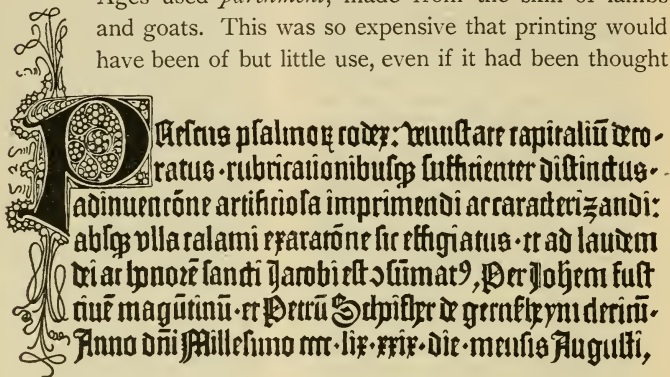 Ages used parchment, made from the skin of lambs
and goats. This was so expensive that printing would
have been of but little use, even if it had been thought
PResens psalmoꝝ codex: venustate capitaliū deco-
ratus·rubricationibusqꝫ sufficienter distinctus·
adinuencōne artificiosa imprimendi ac caracterizandi:
absqꝫ vlla calami exaracōne sic effigiatus·et ad laudem
dei ac honorē sancti Jacobi est ↄsūmatꝰ, Per Johem fust
ciuē magūtinū·et Petrū Schoiffher de gernsheym clericū·
Anno dn̄i Millesimo cccc·lix·xxix·die·mensis Augusti,